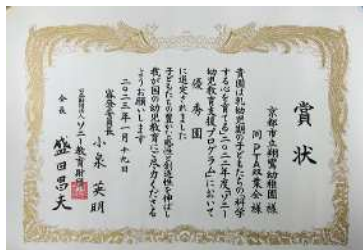 賞状
京都市立翔鸞幼稚園 様
同PTA双葉会 様
貴園は乳幼児期の子どもたちの「科学
する心を育てる」二〇二二年度「ソニー
幼児教育支援プログラム」において
優秀園
に選定されました
子どもたちの豊かな感性と創造性を伸ばし
我が国の幼児教育にご尽力くださる
ようお願いします
二〇二三年一月十九日
審査委員長 小泉英明
公益財団法人 ソニー教育財団
会長 盛田昌夫